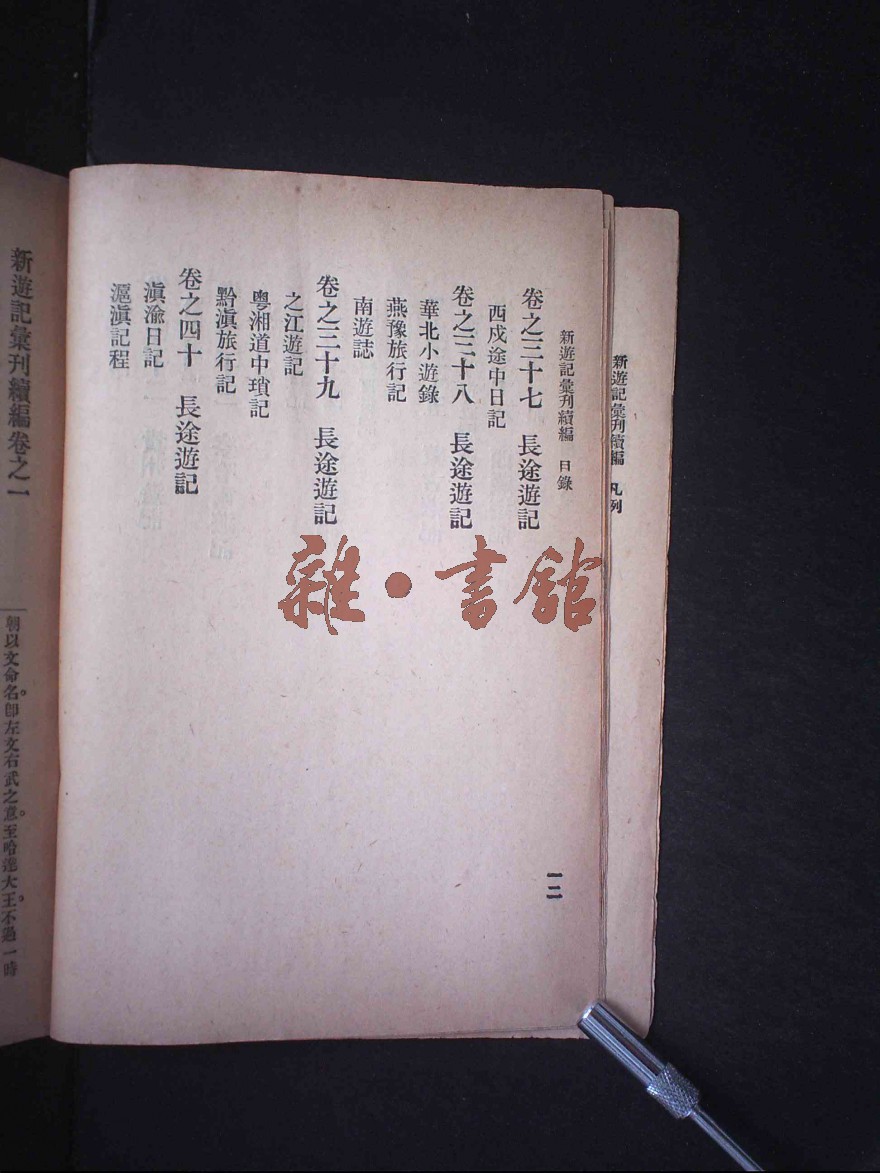 新遊記彙刊續編　凡例
新遊記彙刊續編　目錄
卷之三十七　長途遊記
西戍途中日記
卷之三十八　長途遊記
華北小遊錄
燕豫旅行記
南遊誌
卷之三十九　長途遊記
之江遊記
粵湘道中瑣記
黔滇旅行記
卷之四十　長途遊記
滇渝日記
滬滇記程
一二
新遊記彙刊續編卷之一
朝以文命名。即左文右武之意。至哈達大王。不過一時
雜・書館